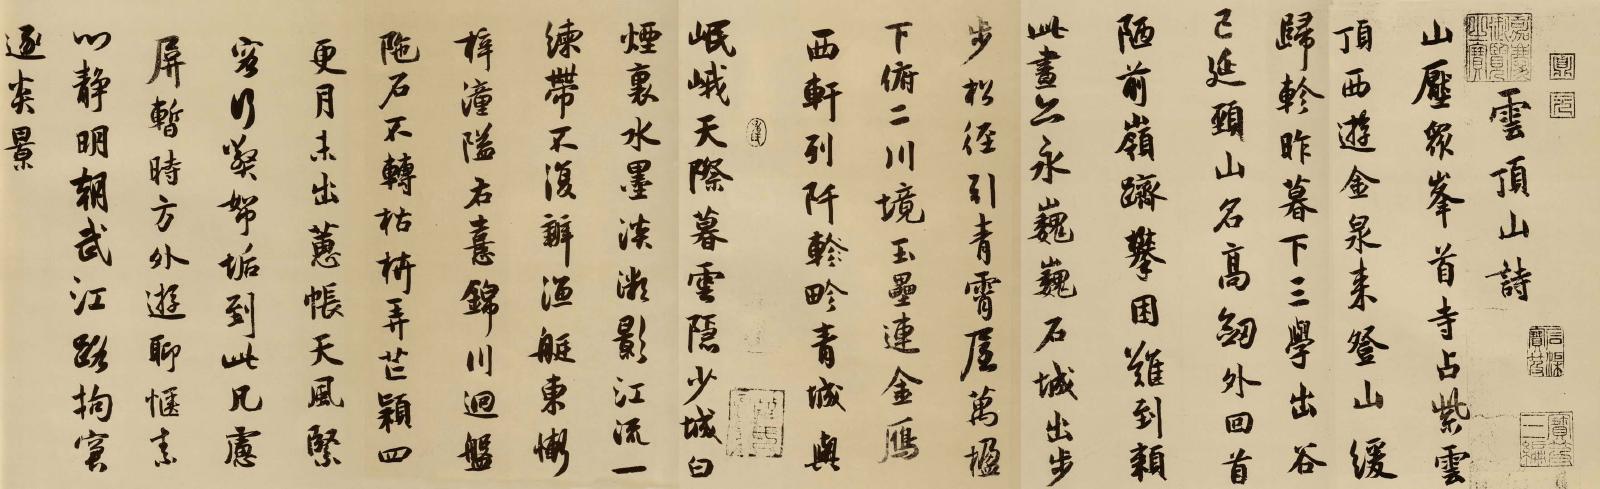 雲頂山詩
山壓衆峯首寺占紫雲
頂西遊金泉来登山緩
歸軫昨暮下三學出谷
已延頸山名高劒外回首
陋前嶺躋攀困難到類
此畫公永巍巍石城出步
步松徑引青霄屋萬楹
下俯二川境玉壘連金鴈
西軒列阡軫畛青城與
岷峨天際暮雲隱少城白
煙裏水墨淡微影江流一
練帶不復辧漁艇東慚
梓潼隘右喜錦川迴盤
陁石不轉枯枿弄芒穎四
更月未出蕙帳天風緊
客行嬰帑垢到此凡慮
屏暫時方外遊聊愜素
心静明朝武江路拘窘
逐炎景